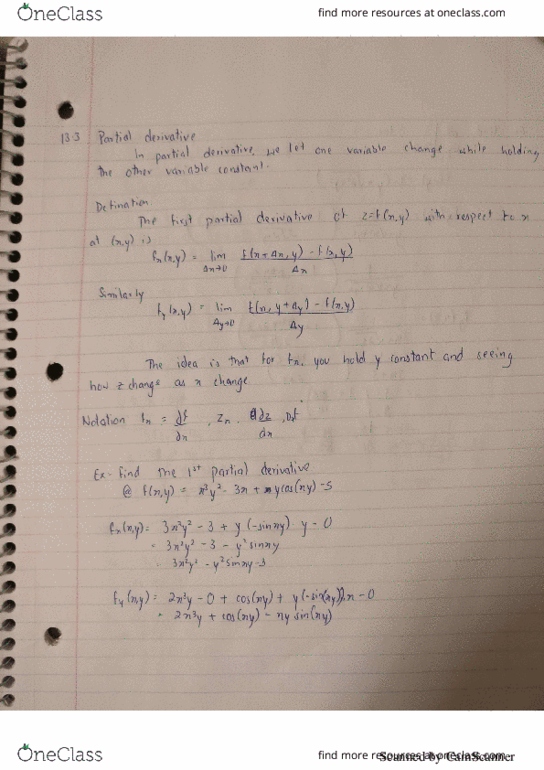 OneClass
find more resources at oneclass.com
13.3 Partial derivative
In partial derivative, we let one variable change while holding
the other variable constant.
Defination
The first partial derivative of z=f(x,y) with respect to x
at (x,y) is
fx(x,y) = lim Δx→0 f(x+Δx, y) - f(x,y) / Δx
Similarly
fy(x,y) = lim Δy→0 f(x, y+Δy) - f(x,y) / Δy
The idea is that for fx, you hold y constant and seeing
how z change as x change
Notation fx = ∂f/∂x , zx , ∂z/∂x
Ex- find the 1st partial derivative
@ f(x,y) = x³y² - 3x + ycos(xy) - 5
fx(x,y) = 3x²y² - 3 + y (-sinxy) y - 0
= 3x²y² - 3 - y² sinxy
= 3x²y² - y² sinxy - 3
fy(x,y) = 2x³y - 0 + cos(xy) + y(-sin(xy))x - 0
= 2x³y + cos(xy) - xy sin(xy)
OneClass
find more resources at oneclass.com
Scanned by CamScanner